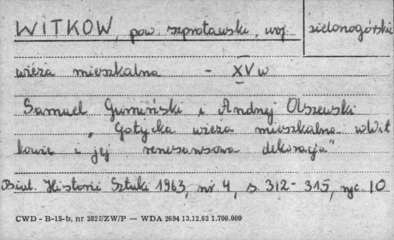 WITKÓW, pow. szprotawski, woj. zielonogórskie
wieża mieszkalna - XV w
Samuel Gumiński i Andrzej Olszewski
"Gotycka wieża mieszkalna w Wit
kowie i jej renesansowa dekoracja"
Biul. Historii Sztuki 1963, nr 4, s. 312-315, ryc. 10
CWD - B-15-b, nr 2827/ZW/P — WDA 2694 13.12.62 1.700.000